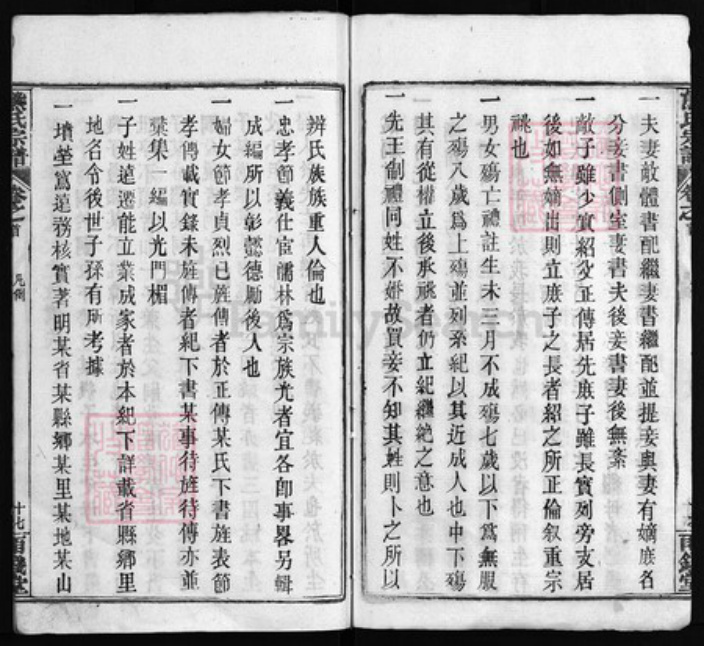 一夫妻敵體書配繼妻書繼配並提妾與妻有嫡庶名
分妾書側室妻書夫後妾書妻後無紊
一敵子雖少實紹父正傳居先庶子雖長實列旁支居
後如無嫡出則立庶子之長者紹之所正倫叙重宗
祧也
一男女殤亡禮註生未三月不成殤七歲以下爲無服
之殤八歲爲上殤並列系紀以其近成人也中下殤
其有從權立後承祧者仍立紀繼絶之意也
一先王制禮同姓不婚故買妾不知其姓則卜之所以
辨氏族族重人倫也
一忠孝節義仕宦儒林爲宗族光者宜各卽事畧另輯
成編所以彰懿德勵後人也
一婦女節孝貞烈已旌傳者於正傳某氏下書旌表節
孝傳載實錄未旌傳者紀下書某事待旌待傳亦並
彙集一編以光門楣
一子姓遠遷能立業成家者於本紀下詳載省縣鄉里
地名令後世子孫有所考據
一墳塋爲遠務核實著明某省某縣鄉某里某地某山
氏宗譜
卷之首
凡例
十七